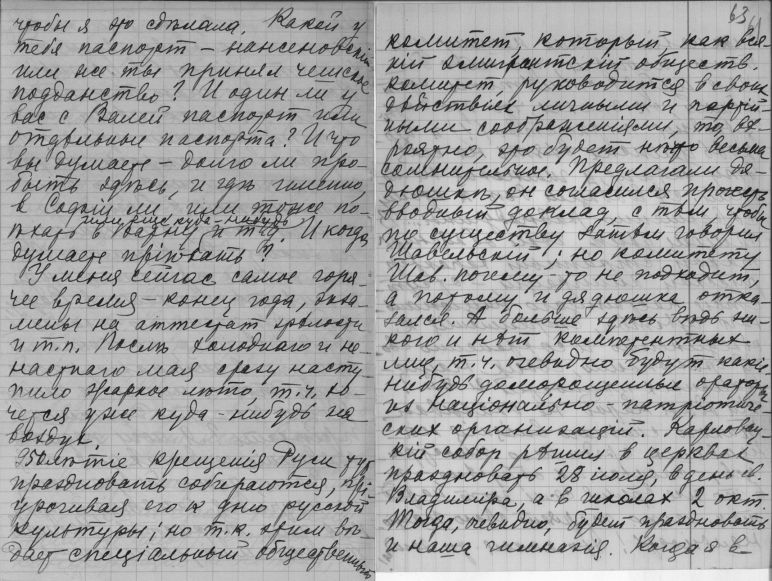 чтобы я это сдѣлала. Какой у
тебя паспорт – нансеновскій
или же ты принял чешское
подданство? И один ли у
вас с Валей паспорт или
отдѣльные паспорта? И что
вы думаете – долго ли про-
быть здѣсь, и гдѣ именно,
в Софіи ли, или тоже по-
или еще куда-нибудь
ѣхать в Варну и т.д. И когда
думаете пріѣхать?
У меня сейчас самое горя-
чее время – конец года, экза-
мены на аттестат зрѣлости
и т.п. Послѣ холоднаго и не-
настнаго мая сразу насту-
пило жаркое лѣто, т.ч. хо-
чется уже куда-нибудь на
воздух.
950-лѣтіе крещенія Руси тут
праздновать собираются, прі-
урочивая его к дню русской
культуры; но т.к. этим вѣ-
дает спеціальный общественный
63
комитет, который, как вся-
кій эмигрантскій обществ.
комитет, руководится в своих
дѣйствіях личными и партій-
ными соображеніями, то, вѣ-
роятно, это будет нѣчто весьма
сомнительное. Предлагали дя-
дюшкѣ, он согласился прочесть
вводный доклад, с тѣм, чтобы
по существу затѣм говорил
Шавельскій; но комитету
Шав. почему-то не подходит,
а потому и дядюшка отка-
зался. А больше здѣсь вѣдь ни-
кого и нѣт компетентных
лиц, т.ч. очевидно будут какіе-
нибудь доморощенные ораторы
из національно-патріотиче-
ских организацій. Карловац-
кій собор рѣшил в церквах
праздновать 28 іюля, в день св.
Владиміра, а в школах 2 окт.
Тогда, очевидно, будет праздновать
и наша гимназія. Когда я в